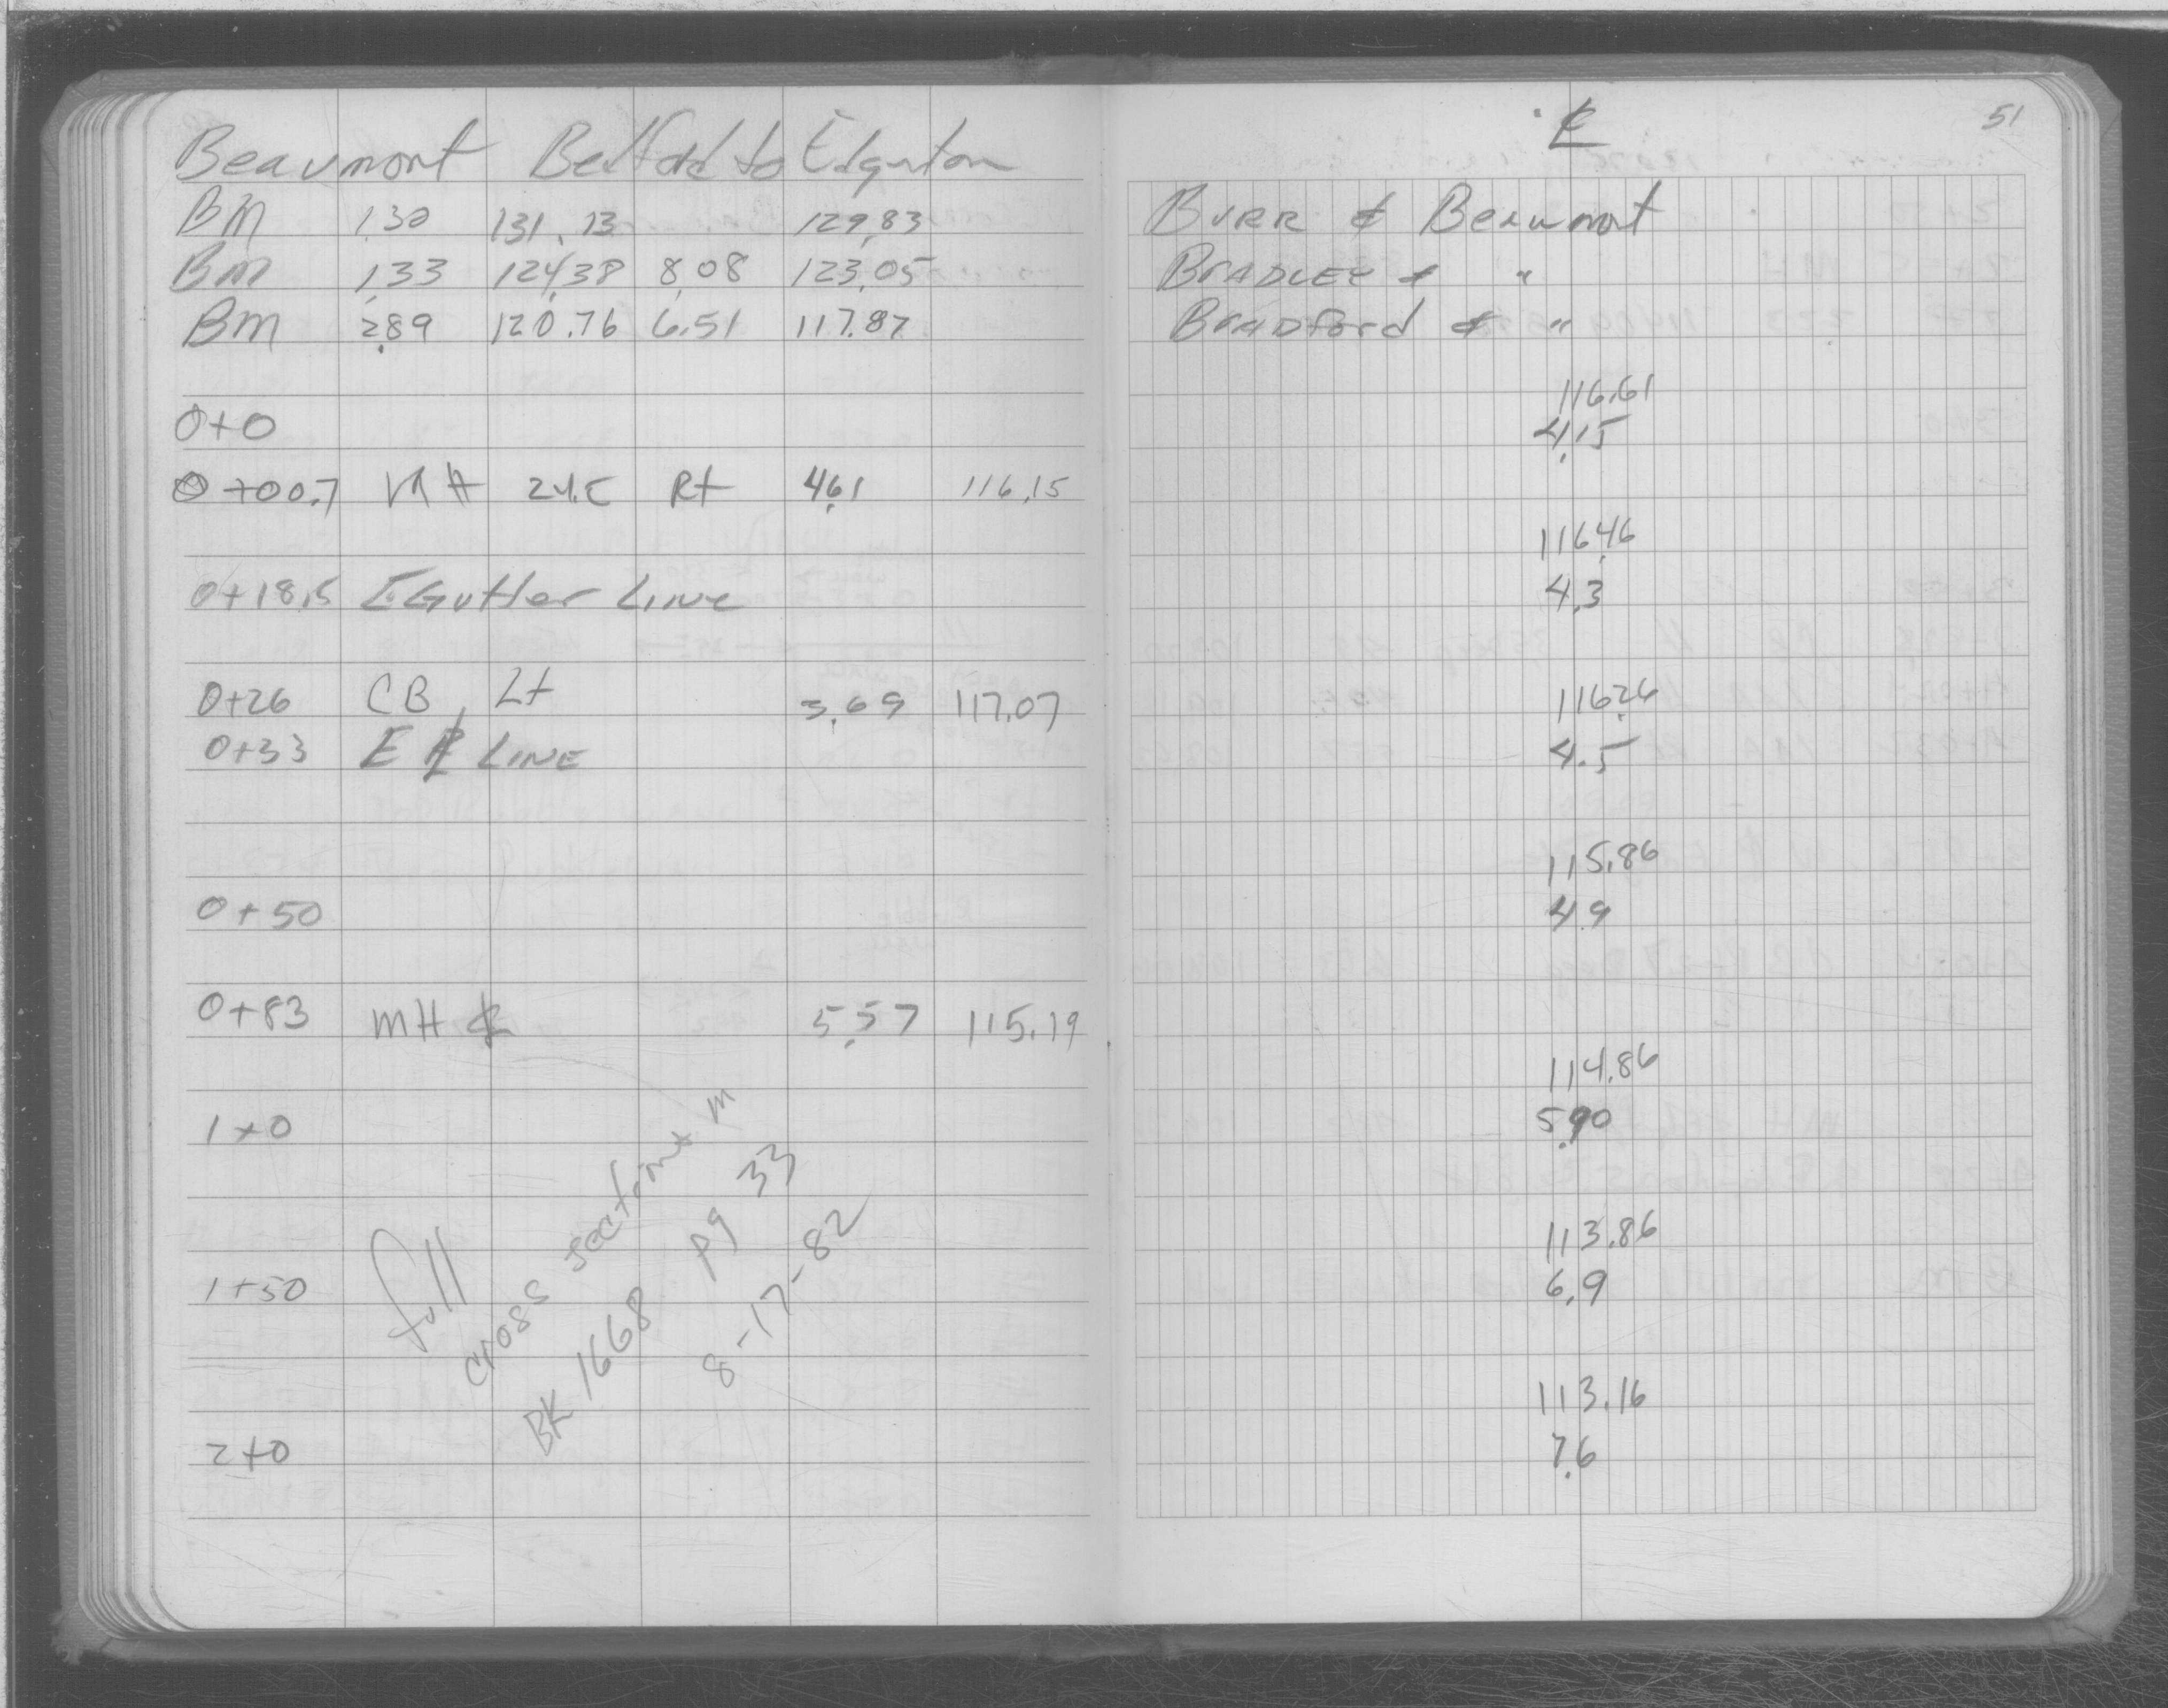 Beaumont Bedford to Edgerton
BM 1.30 131.13 129.83
BM 1.33 124.38 8.08 123.05
BM 2.89 120.76 6.51 117.87
0+0
0+00.7 MH Rt 4.61 116.15
0+18.5 E Gutter Line
0+26 CB Lt 3.69 117.07
0+33 E ⅊ LINE
0+50
0+83 MH ℄ 5.57 115.19
1+0
1+50
2+0
full
cross sections in
BK 1668 pg 33
8-17-82
℄
51
BURR & Beaumont
BRADLEY & "
BRADford & "
116.61
4.15
116.46
4.3
116.26
4.5
115.86
4.9
114.86
5.90
113.86
6.9
113.16
7.6